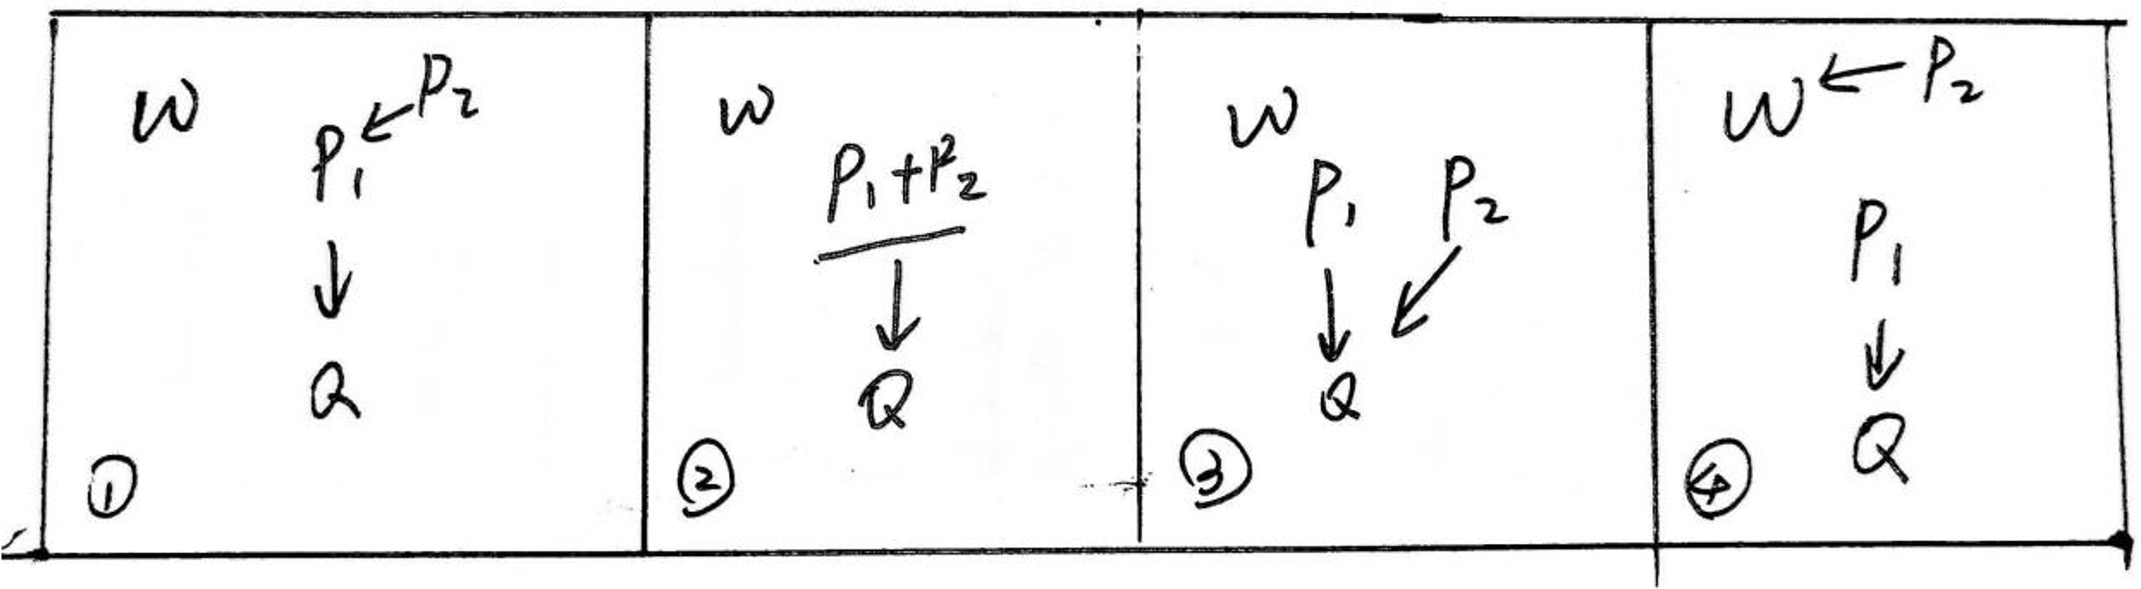 W P₁ ← P₂
↓
Q
①
W
P₁+P₂
↓
Q
②
W
P₁ P₂
↓ ↙
Q
③
W ← P₂
P₁
↓
Q
④